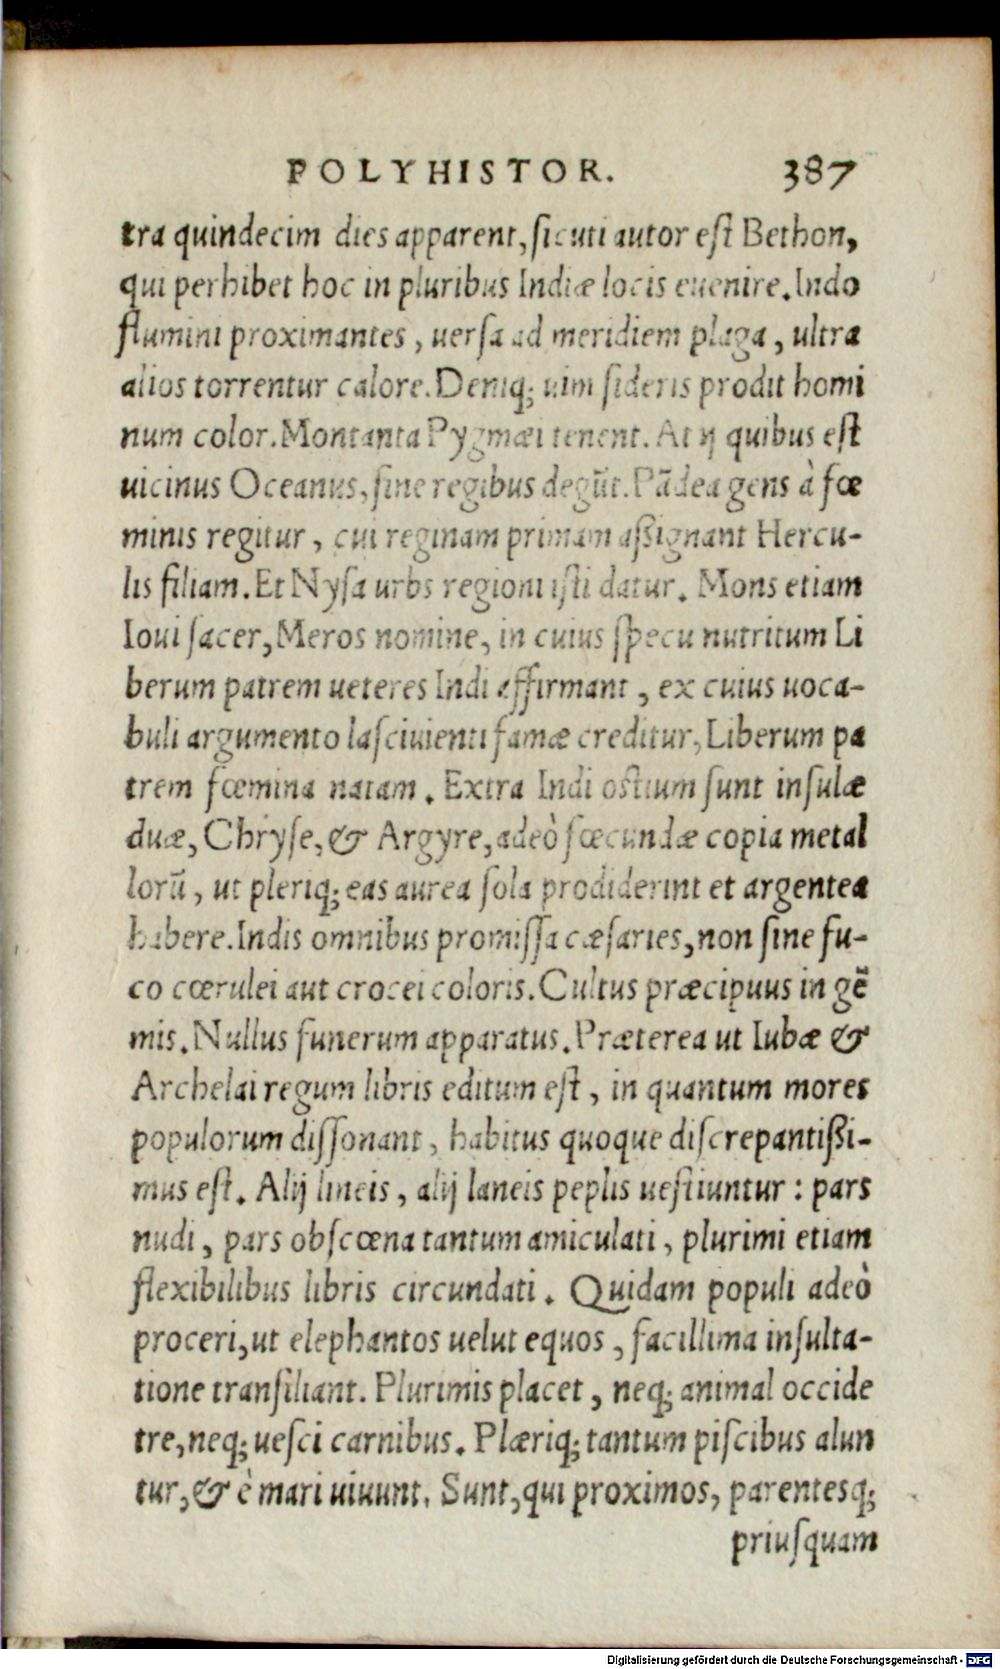 POLYHISTOR. 387
tra quindecim dies apparent, sicuti autor est Bethon,
qui perhibet hoc in pluribus Indiæ locis euenire. Indo
flumini proximantes, uersa ad meridiem plaga, ultra
alios torrentur calore. Deniq; uim sideris prodit homi
num color. Montanta Pygmæi tenent. At ij quibus est
uicinus Oceanus, sine regibus degũt. Pãdea gens à fœ
minis regitur, cui reginam primam aßignant Hercu-
lis filiam. Et Nysa urbs regioni isti datur. Mons etiam
Ioui sacer, Meros nomine, in cuius specu nutritum Li
berum patrem ueteres Indi affirmant, ex cuius uoca-
buli argumento lasciuienti famæ creditur, Liberum pa
trem fœmina natam. Extra Indi ostium sunt insulæ
duæ, Chryse, & Argyre, adeò fœcundæ copia metal
lorũ, ut pleriq; eas aurea sola prodiderint et argentea
habere. Indis omnibus promissa cæsaries, non sine fu-
co cœrulei aut crocei coloris. Cultus præcipuus in gẽ
mis. Nullus funerum apparatus. Præterea ut Iubæ &
Archelai regum libris editum est, in quantum mores
populorum dissonant, habitus quoque discrepantißi-
mus est. Alij lineis, alij laneis peplis uestiuntur: pars
nudi, pars obscœna tantum amiculati, plurimi etiam
flexibilibus libris circundati. Quidam populi adeò
proceri, ut elephantos uelut equos, facillima insulta-
tione transiliant. Plurimis placet, neq; animal occide
tre, neq; uesci carnibus. Plæriq; tantum piscibus alun
tur, & è mari uiuunt. Sunt, qui proximos, parentesq;
priusquam
Digitalisierung gefördert durch die Deutsche Forschungsgemeinschaft - DFG